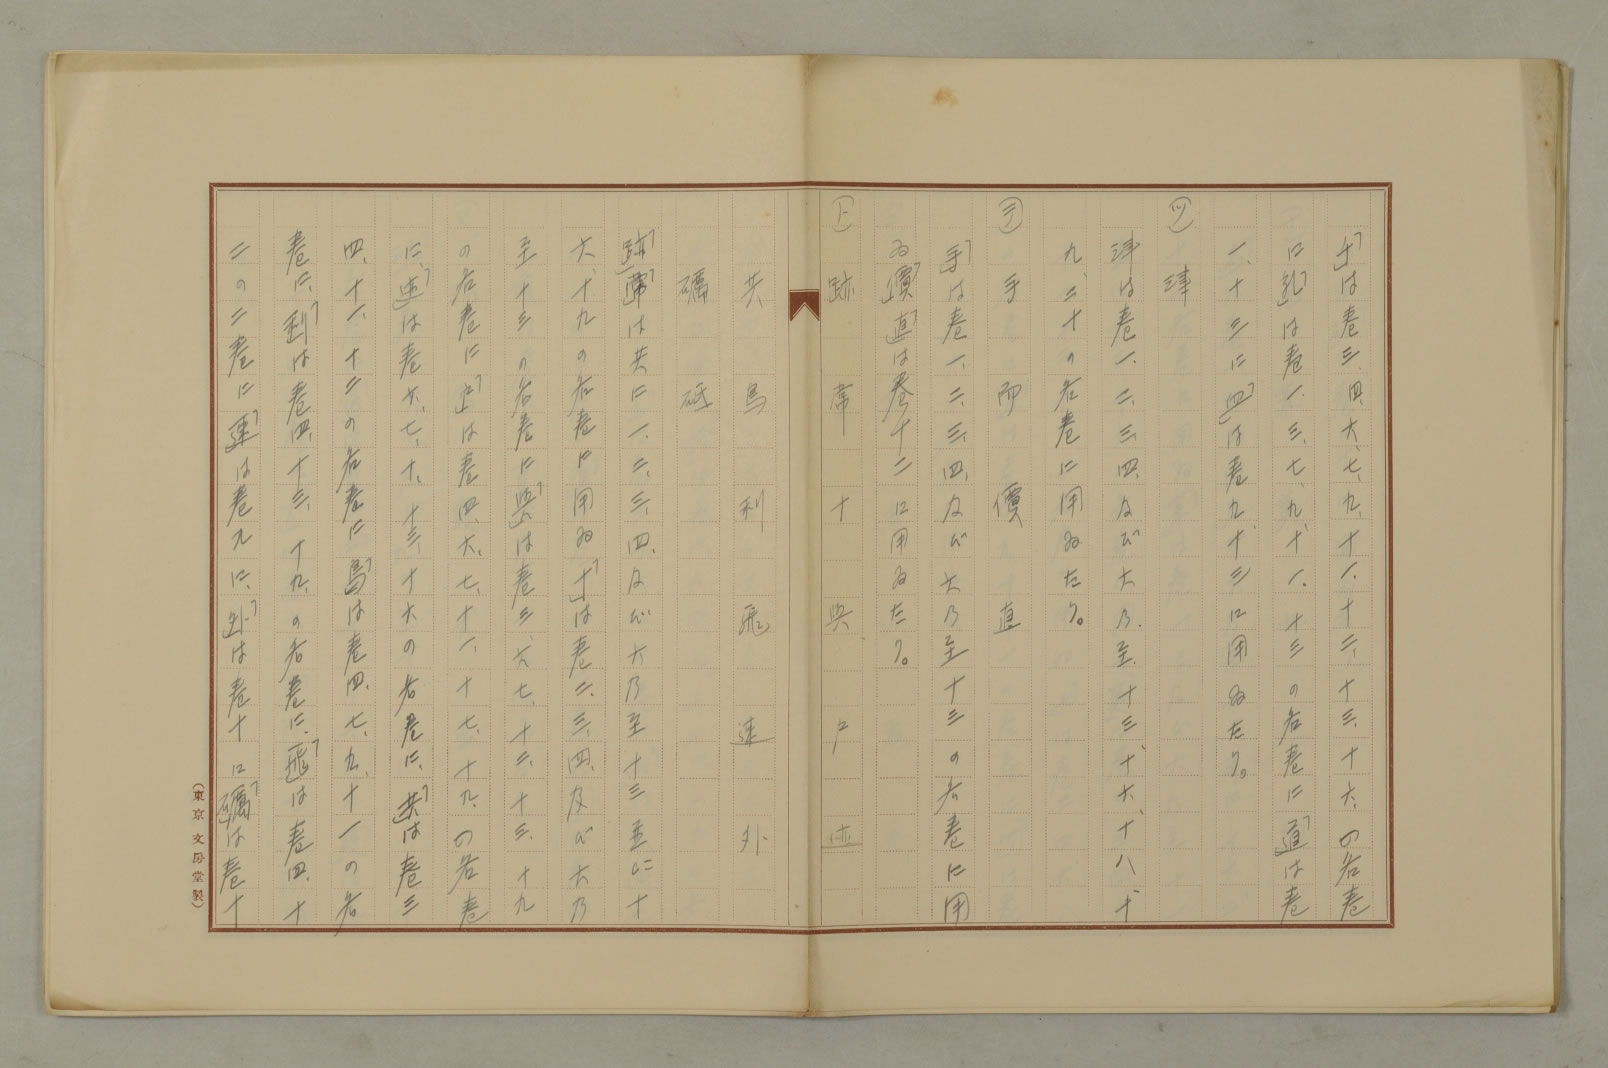 「は巻三、四、六、七、九、十一、十二、十三、十六、の各巻
には巻一、三、七、九、十一、十三の各巻に「道」は巻
一、十三に「四」は巻九、十三に用ゐたり。
ツ 津
津は巻一、二、三、四、及び六乃至、十三、十六、十八、十
九、二十の各巻に用ゐたり。
テ 手 而 價 直
「手」は巻一、二、三、四、及び六乃至十三の各巻に用
ゐ「價」「直」は巻十二に用ゐたり。
ト 跡 常 十 與 戸 迹
共 鳥 利 飛 速 外
礪 砥
「跡」「常」は共に一、二、三、四、及び六乃至十三並に十
六、十九の各巻に用ゐ「十」は巻二、三、四、及び六乃
至十三の各巻に「與」は巻三、六、七、十二、十三、十九
の各巻に は巻四、六、七、十一、十七、十九、の各巻
に、「迹」は巻六、七、十、十三、十六の各巻に、「共」は巻三
四、十一、十二の各巻に「鳥」は巻四、七、九、十一の各
巻に、「利」は巻四、十三、十九、の各巻に、「飛」は巻四、十
二の二巻に「速」は巻九に、「外」は巻十に「礪」は巻十
(東京 文房堂製)